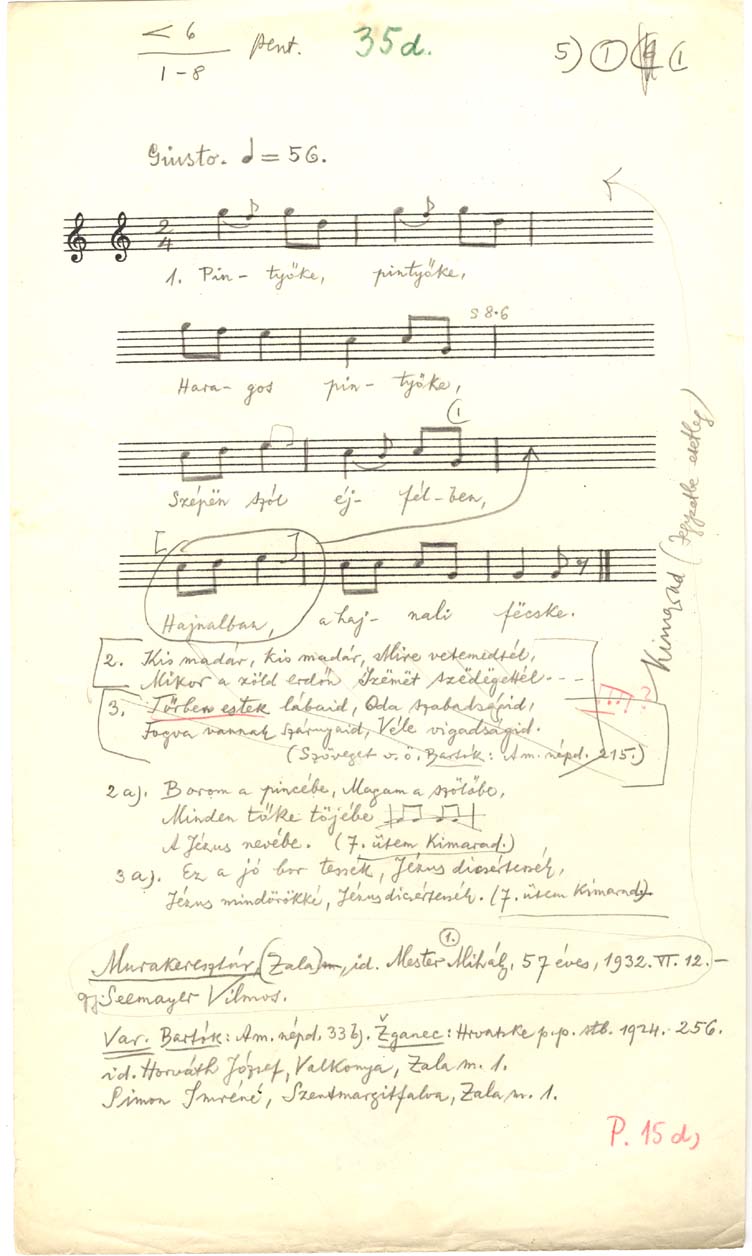 < 6 pent. 35d. 5) ① ①
1-8
Giusto. ♩ = 56.
2
4
1. Pin- tyőke, pintyőke,
s 8·6
Hara- gos pin- tyőke,
①
Szépën szól éj- fél-ben,
[ ]
Hajnalban, a haj- nali fëcske.
Kimarad (Jegyzetbe esetleg)
2. Kis madár, kis madár, Mire vetemedtél,
Mikor a zöld erdőn Szëmët szëdëgettél- - -
3. Tőrben estek lábaid, Oda szabadságid,
?
Fogva vannak szárnyaid, Véle vigadságid.
(Szöveget v.ö. Bartók: A m. népd. 215.)
2 a). Borom a pincébe, Magam a szőlőbe,
Minden tőke tőjébe
A Jézus nevébe. (7. ütem Kimarad.)
3 a). Ez a jó bor tessék, Jézus dicsértessék,
Jézus mindörökké, Jézus dicsértessék. (7. ütem Kimarad).
1.
Murakeresztúr, (Zala) m, id. Mester Mihály, 57 éves, 1932. VI. 12.-
gy. Seemayer Vilmos.
Var. Bartók: A m. népd. 33 b). Žganec: Hrvatske p.p. stb. 1924. 256.
id. Horváth József, Valkonya, Zala m. 1.
Simon Imréné, Szentmargitfalva, Zala m. 1.
P. 15 d)